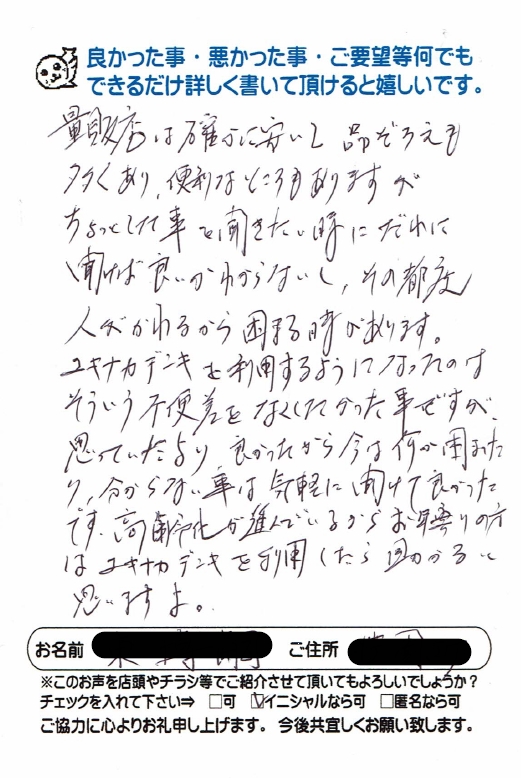 良かった事・悪かった事・ご要望等何でも
できるだけ詳しく書いて頂けると嬉しいです。
量販店は確かに安いし 品ぞろえも
多くあり、便利なところもありますが
ちょっとした事を聞きたい時にだれに
聞けば良いかわからないし、その都度
人がかわるから困る時があります。
ユキナカデンキを利用するようになったのは
そういう不便差をなくしたかった事ですが、
思っていたより良かったから今は何か困まった
り、分からない事は気軽に聞けて良かった
です。高齢化が進んでいるからお年寄りの方
はユキナカデンキを利用したら助かると
思いますよ。
お名前 ご住所
※このお声を店頭やチラシ等でご紹介させて頂いてもよろしいでしょうか?
チェックを入れて下さい⇒ □可 ☑イニシャルなら可 □匿名なら可
ご協力に心よりお礼申し上げます。 今後共宜しくお願い致します。